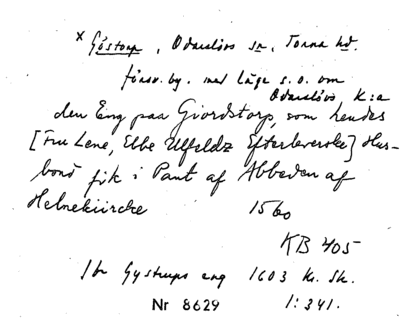 x Göstorp, Odarslövs sn, Torna hd.
försv. by. med läge s.o. om
Odarslövs K:a
den Eng paa Giordstorp, som hendes
[Fru Lene, Ebbe Ulfeldz Efterleverske] Hus-
bond fik i Pant af Abbeden af
Helnekircke 1560
KB 405
Ibr Gystrups eng 1603 Kr. Sk.
Nr 8629 1:341.